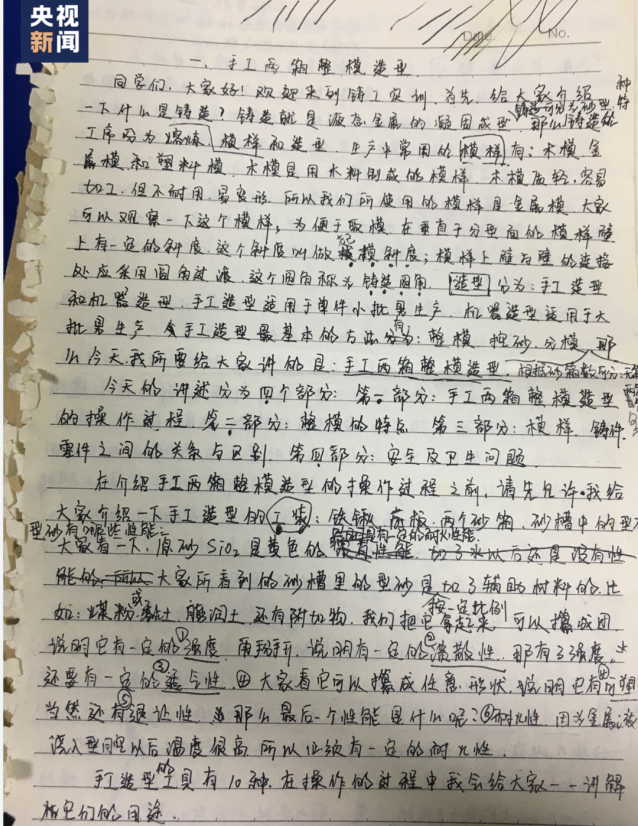 央视
新闻
Date.
No.
一、手工两箱整模造型
同学们，大家好！欢迎来到铸工实训，首先，给大家介绍
一下什么是铸造？铸造就是液态金属的凝固成型，那么铸造的
工序分为熔炼、模样和造型，生产中常用的模样有：木模、金
属模和塑料模，木模是用木料制成的模样，木模质轻，容易
加工，但不耐用，易变形，所以我们所使用的模样是金属模，大家
可以观察一下这个模样，为便于取模，在垂直于分型面的模样壁
上有一定的斜度，这个斜度叫做起模斜度；模样上壁与壁的连接
处应采用圆角过渡，这个圆角称为铸造圆角，造型分为：手工造型
和机器造型，手工造型适用于单件小批量生产，机器造型适用于大
批量生产，手工造型最基本的方法有：整模、挖砂、分模，那
么今天我所要给大家讲的是：手工两箱整模造型，根据砂箱数可分
今天的讲述分为四个部分：第一部分：手工两箱整模造型
的操作过程，第二部分：整模的特点，第三部分：模样、铸件、
零件之间的关系与区别，第四部分：安全及卫生问题
在介绍手工两箱整模造型的操作过程之前，请先允许我给
大家介绍一下手工造型的工装：铁锹、底板、两个砂箱，砂槽中的型
型砂有哪些性能：
大家看一下，原砂SiO₂是黄色的没有性能，加了水以后还是没有性
能的，所以大家所看到的砂槽里的型砂是加了辅助材料的，比
如：煤粉或黏土，膨润土，还有附加物，我们把它按一定比例拿起来，可以攥成团，
说明它有一定的①强度，用手掰开，说明有一定的②溃散性，那有了强度，
还要有一定的③透气性，④大家看它可以攥成任意形状，说明它有可塑
当然还有⑤退让性，那么最后一个性能是什么呢？⑥耐火性，因为金属液
浇入型腔以后温度很高，所以必须有一定的耐火性。
手工造型的工具有10种，在操作的过程中我会给大家一一讲解
它们的用途。